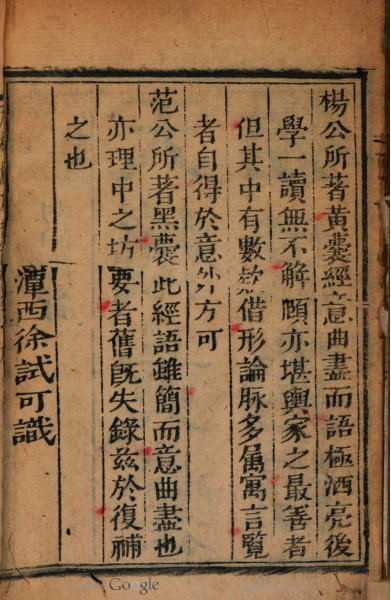 楊公所著黃囊經意曲盡而語極洒亮後
學一讀無不解頤亦堪輿家之最善者
但其中有數款借形論脉多屬寓言覽
者自得於意外方可
范公所著黑囊此經語雖簡而意曲盡也
亦理中之坊要者舊旣失錄茲於復補
之也
潭西徐試可識
Google